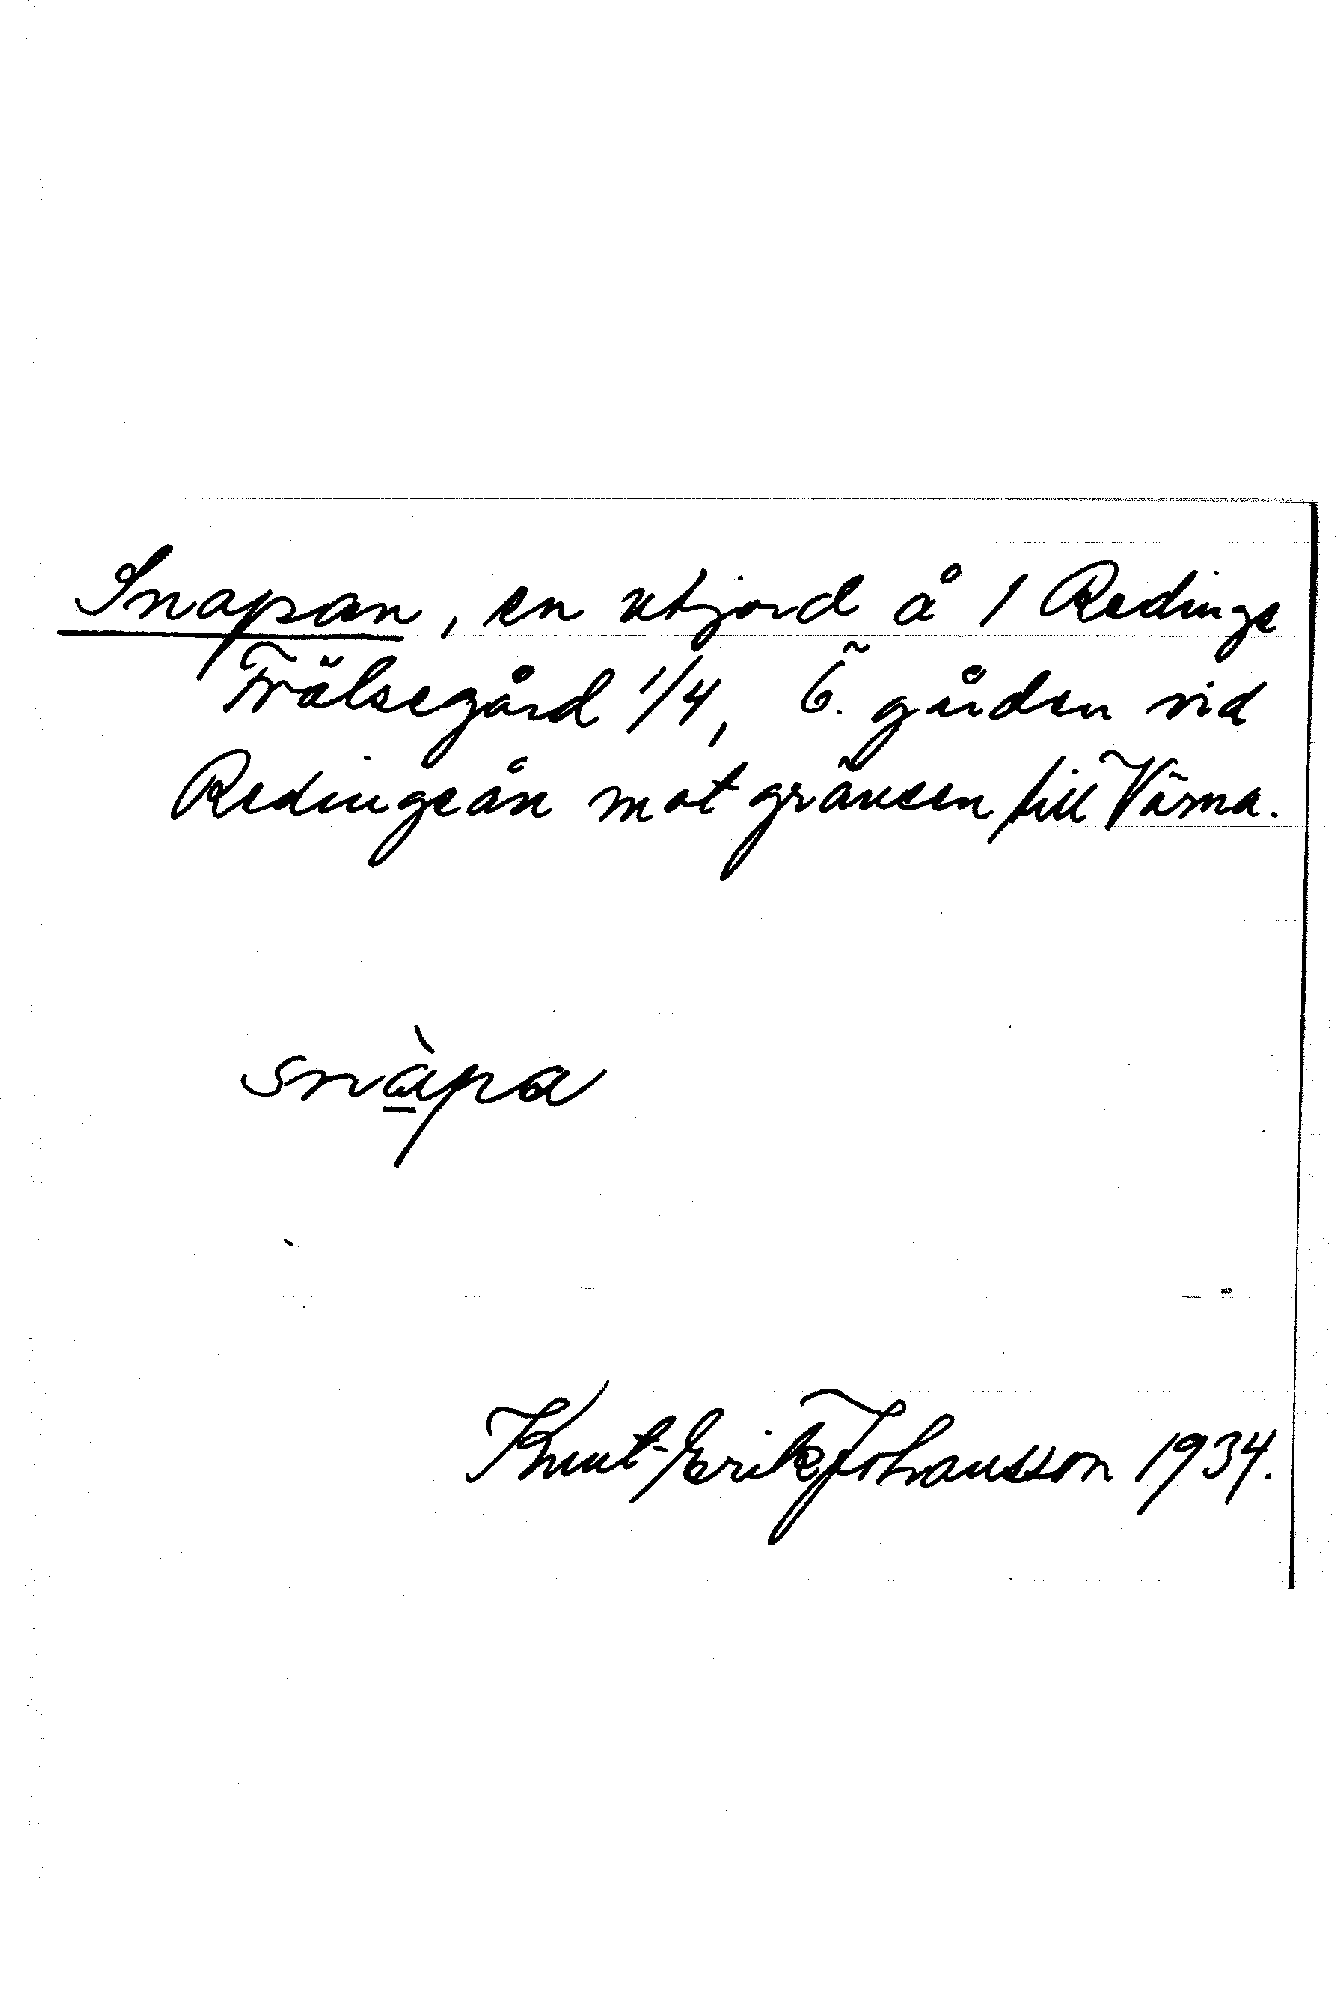 Snapan, en utjord å 1 Redinge
Frälsegård 1/4, Ö. gården vid
Redingeån mot gränsen till Värna.
snàpa
Knut-Erik Johansson 1934.